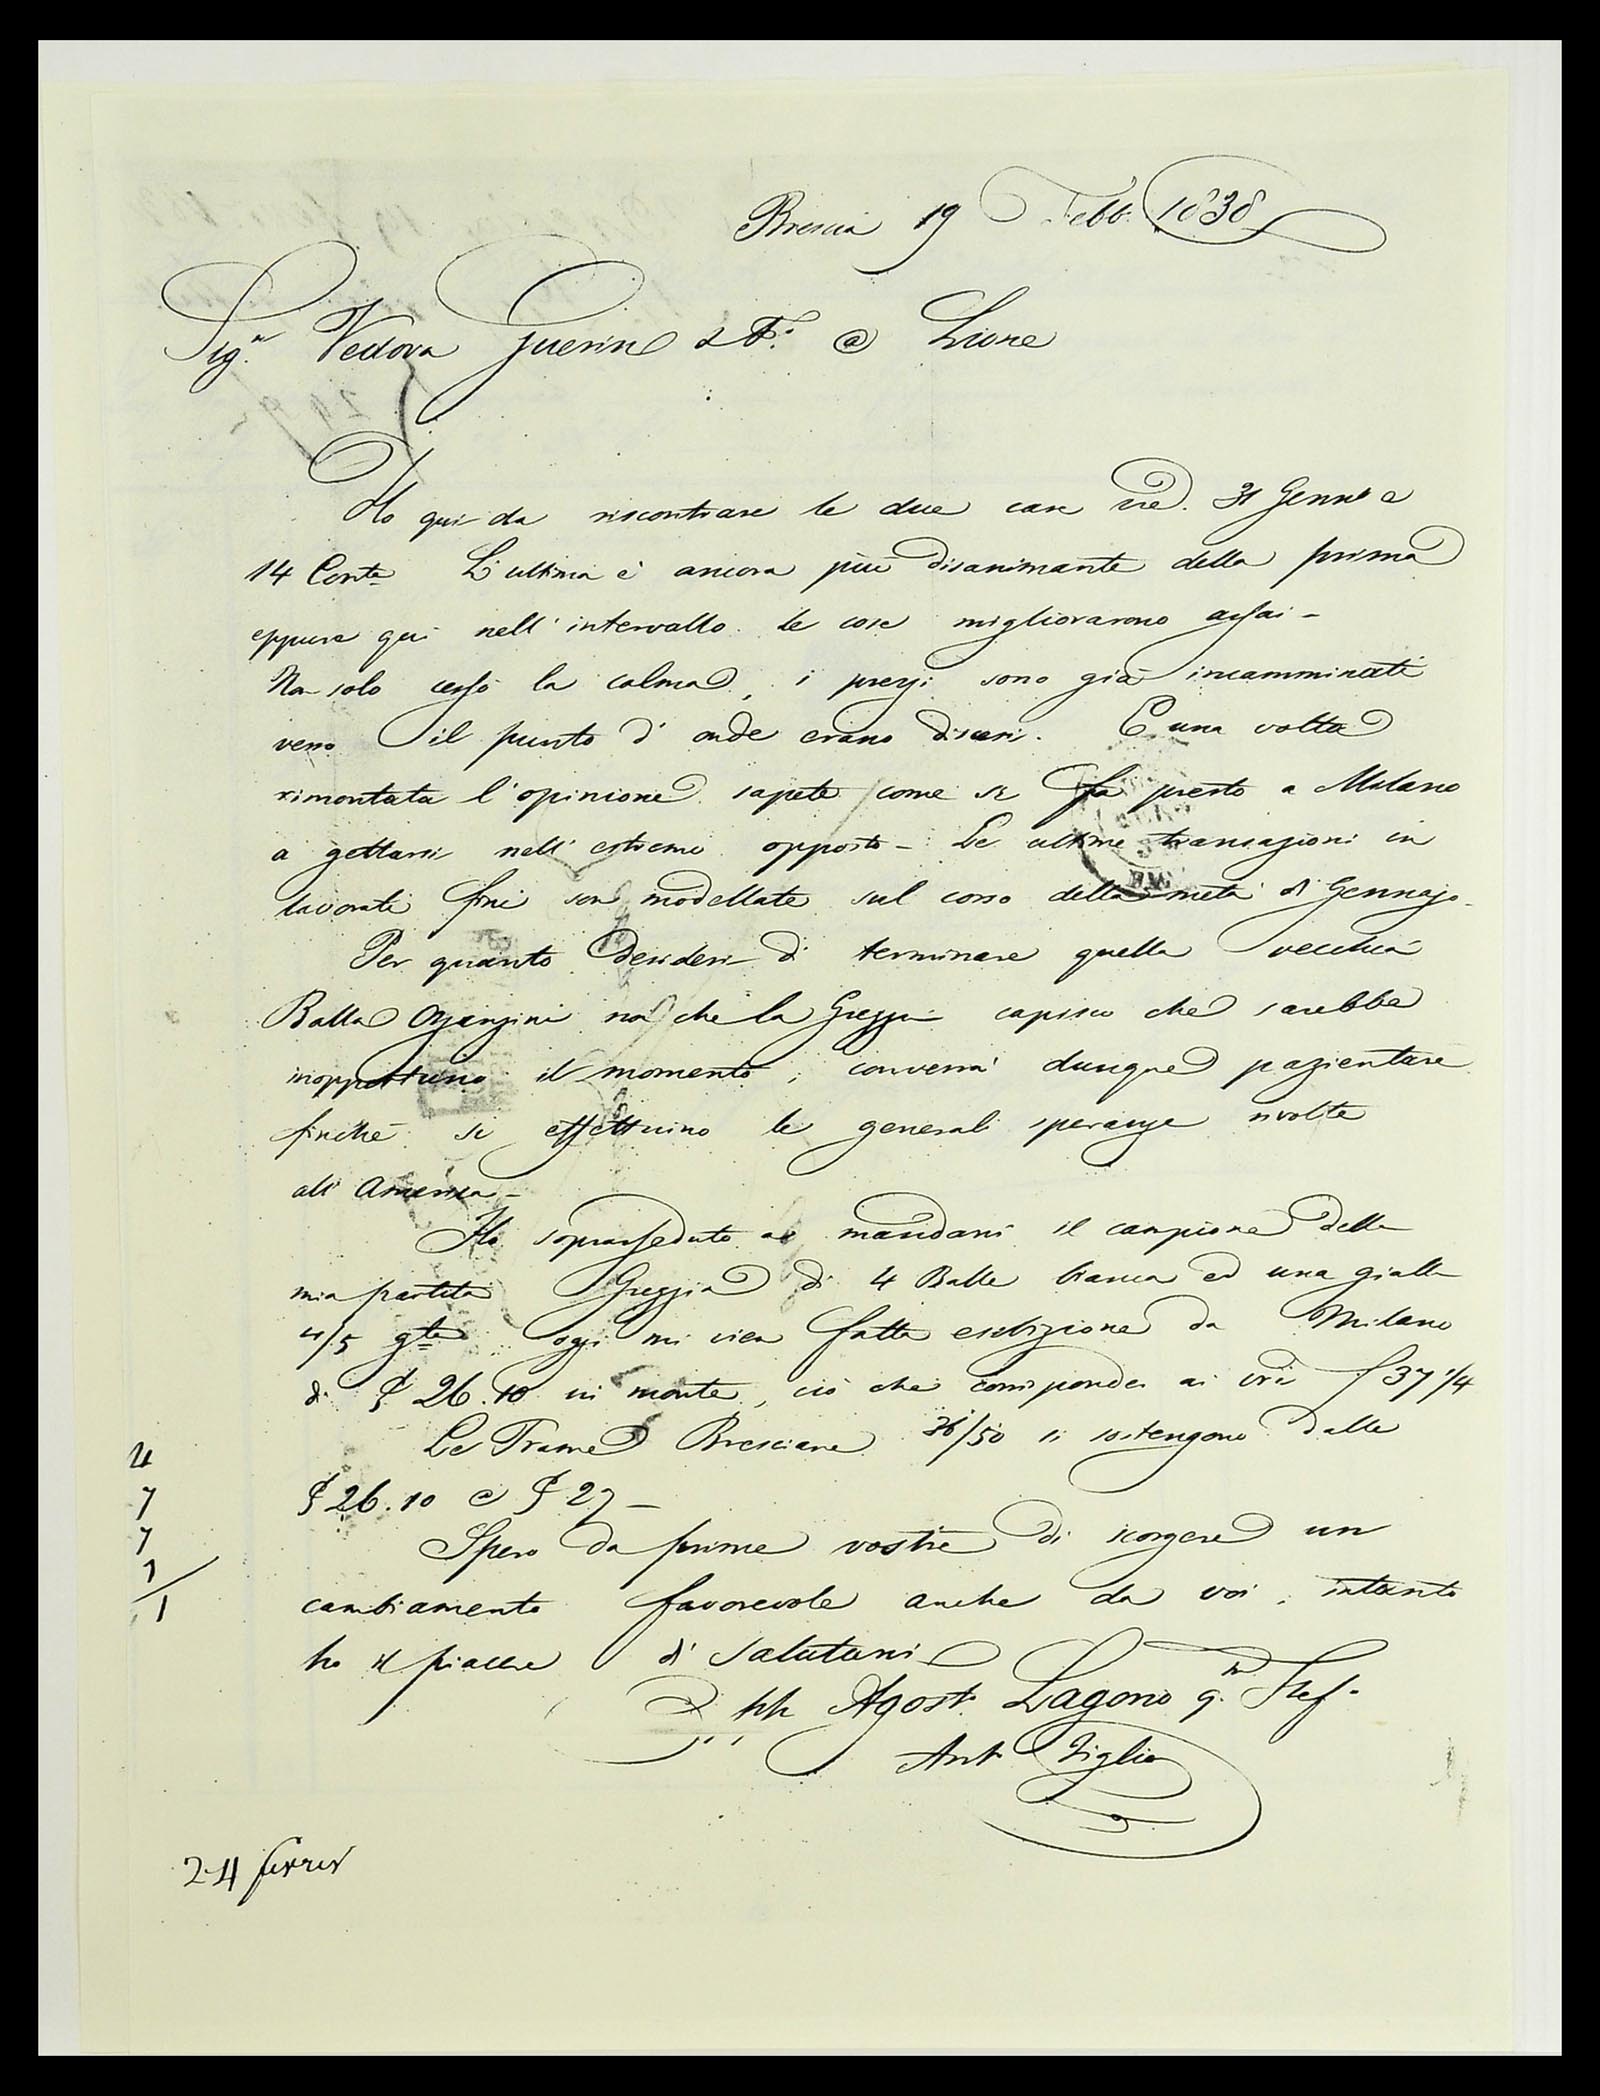 Brescia 19 Febb. 1838
Sig.ri Vedova Guerin & F.o @ Lione
Ho qui da riscontrare le due care vre. 31 Genn.o e
14 Corr.te L'ultima è ancora più disanimante della prima
eppure qui nell'intervallo le cose migliorarono assai -
Non solo cessò la calma, i prezzi sono già incamminati
verso il punto d'onde erano discesi. E una volta
rimontata l'opinione sapete come si fa presto a Milano
a gettarsi nell'estremo opposto - Le ultime transazioni in
lavorati fini son modellate sul corso della metà di Gennajo.
Per quanto desideri di terminare quella vecchia
Balla Organzini non che la Greggia capisco che sarebbe
inopportuno il momento; converrà dunque pazientare
finchè si effettuino le generali speranze rivolte
all'America -
Ho soprasseduto a mandarvi il campione della
mia partita Greggia di 4 Balle bianca ed una gialla
4/5 g.tte oggi mi vien fatta esibizione da Milano
di £ 26.10 in monte, ciò che corrisponde ai vri f 37 1/4
Le Trame Bresciane 36/50 si sostengono dalle
£ 26.10 @ £ 27 -
Spero da prime vostre di scorgere un
cambiamento favorevole anche da voi, intanto
ho il piacere di salutarvi
pp. Agost. Lagorio q.m Stef.
Ant.
4
7
7
1
1
24